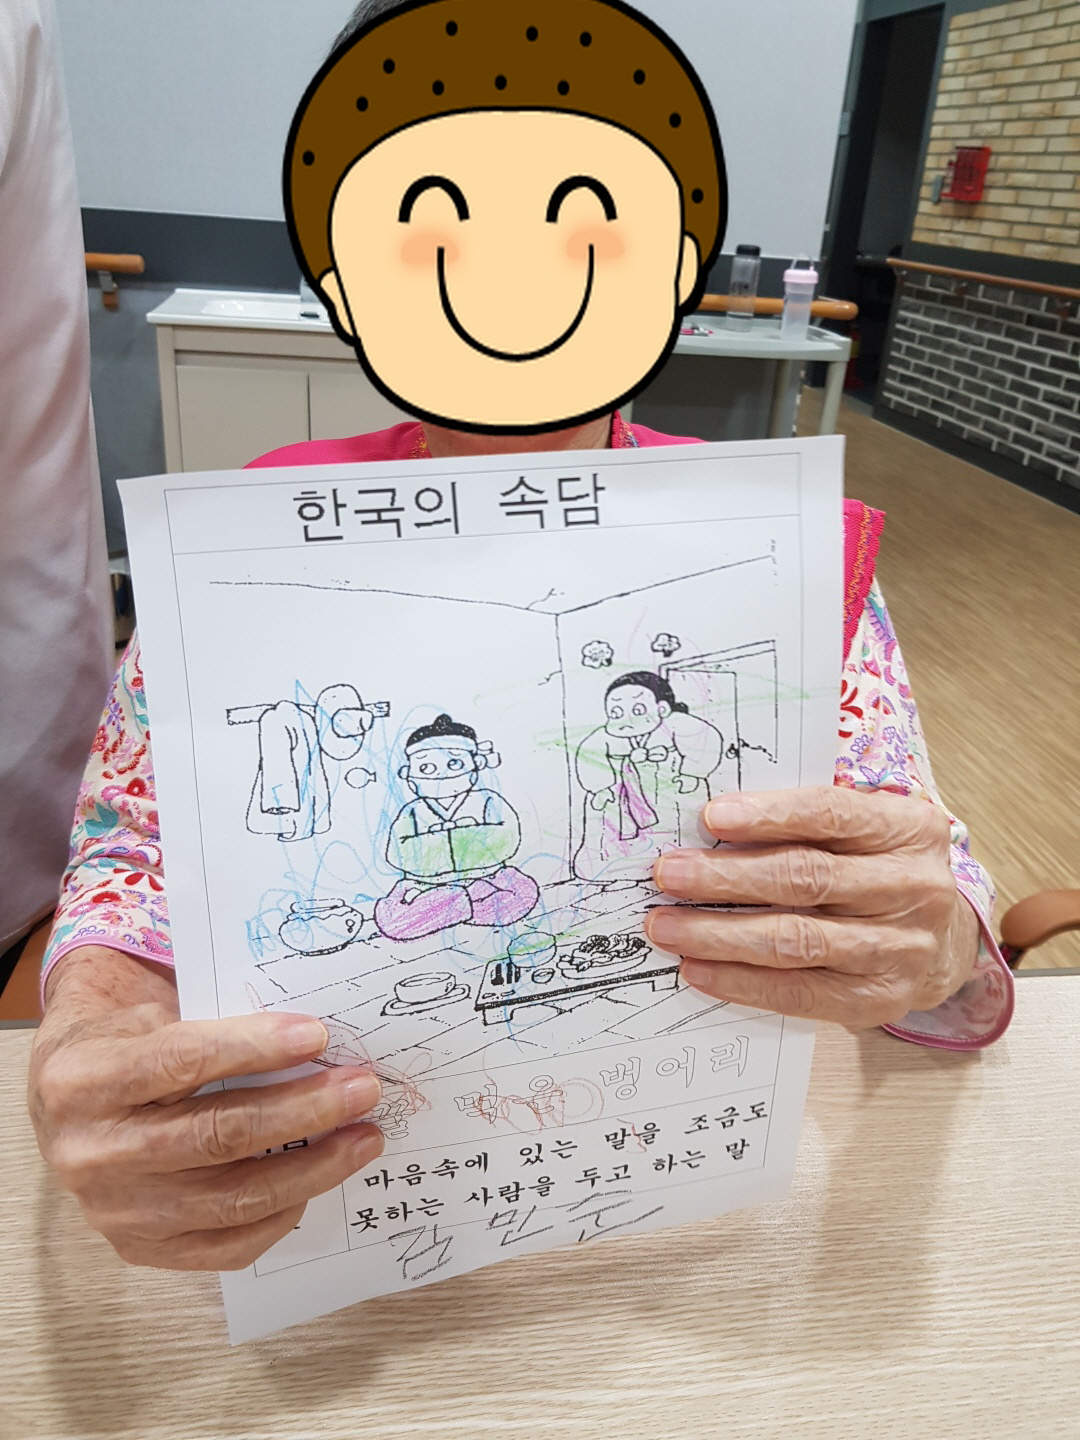 한국의 속담
꿀 먹은 벙어리
마음속에 있는 말을 조금도
못하는 사람을 두고 하는 말
김민순